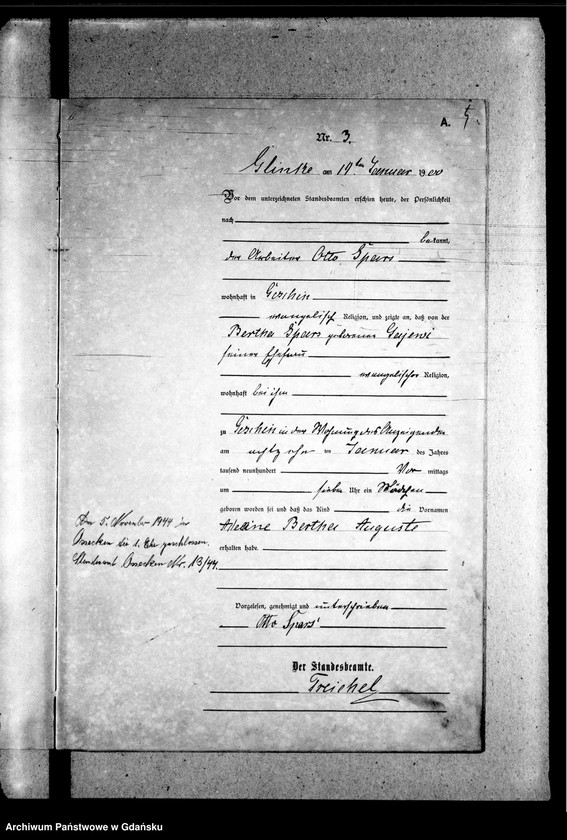 A.
Nr. 3.
Glinke am 19ten Januar 1900
Vor dem unterzeichneten Standesbeamten erschien heute, der Persönlichkeit
nach
bekannt,
der Arbeiter Otto Spars
wohnhaft in Gerhin
evangelisch Religion, und zeigte an, daß von der
Bertha Spars geborenen
seiner Ehefrau
evangelischer Religion,
wohnhaft bei ihm
zu in der Wohnung des Anzeigenden
am achtzehn ten Januar des Jahres
tausend neunhundert Vor mittags
um sieben Uhr ein Mädchen
geboren worden sei und daß das Kind die Vornamen
Bertha Auguste
erhalten habe.
Vorgelesen, genehmigt und unterschrieben
Otto Spars
Der Standesbeamte.
Treichel
Am 5. November 1944 in
Ossecken die 1. Ehe geschlossen.
Standesamt Ossecken Nr. 13/44.
Archiwum Państwowe w Gdańsku